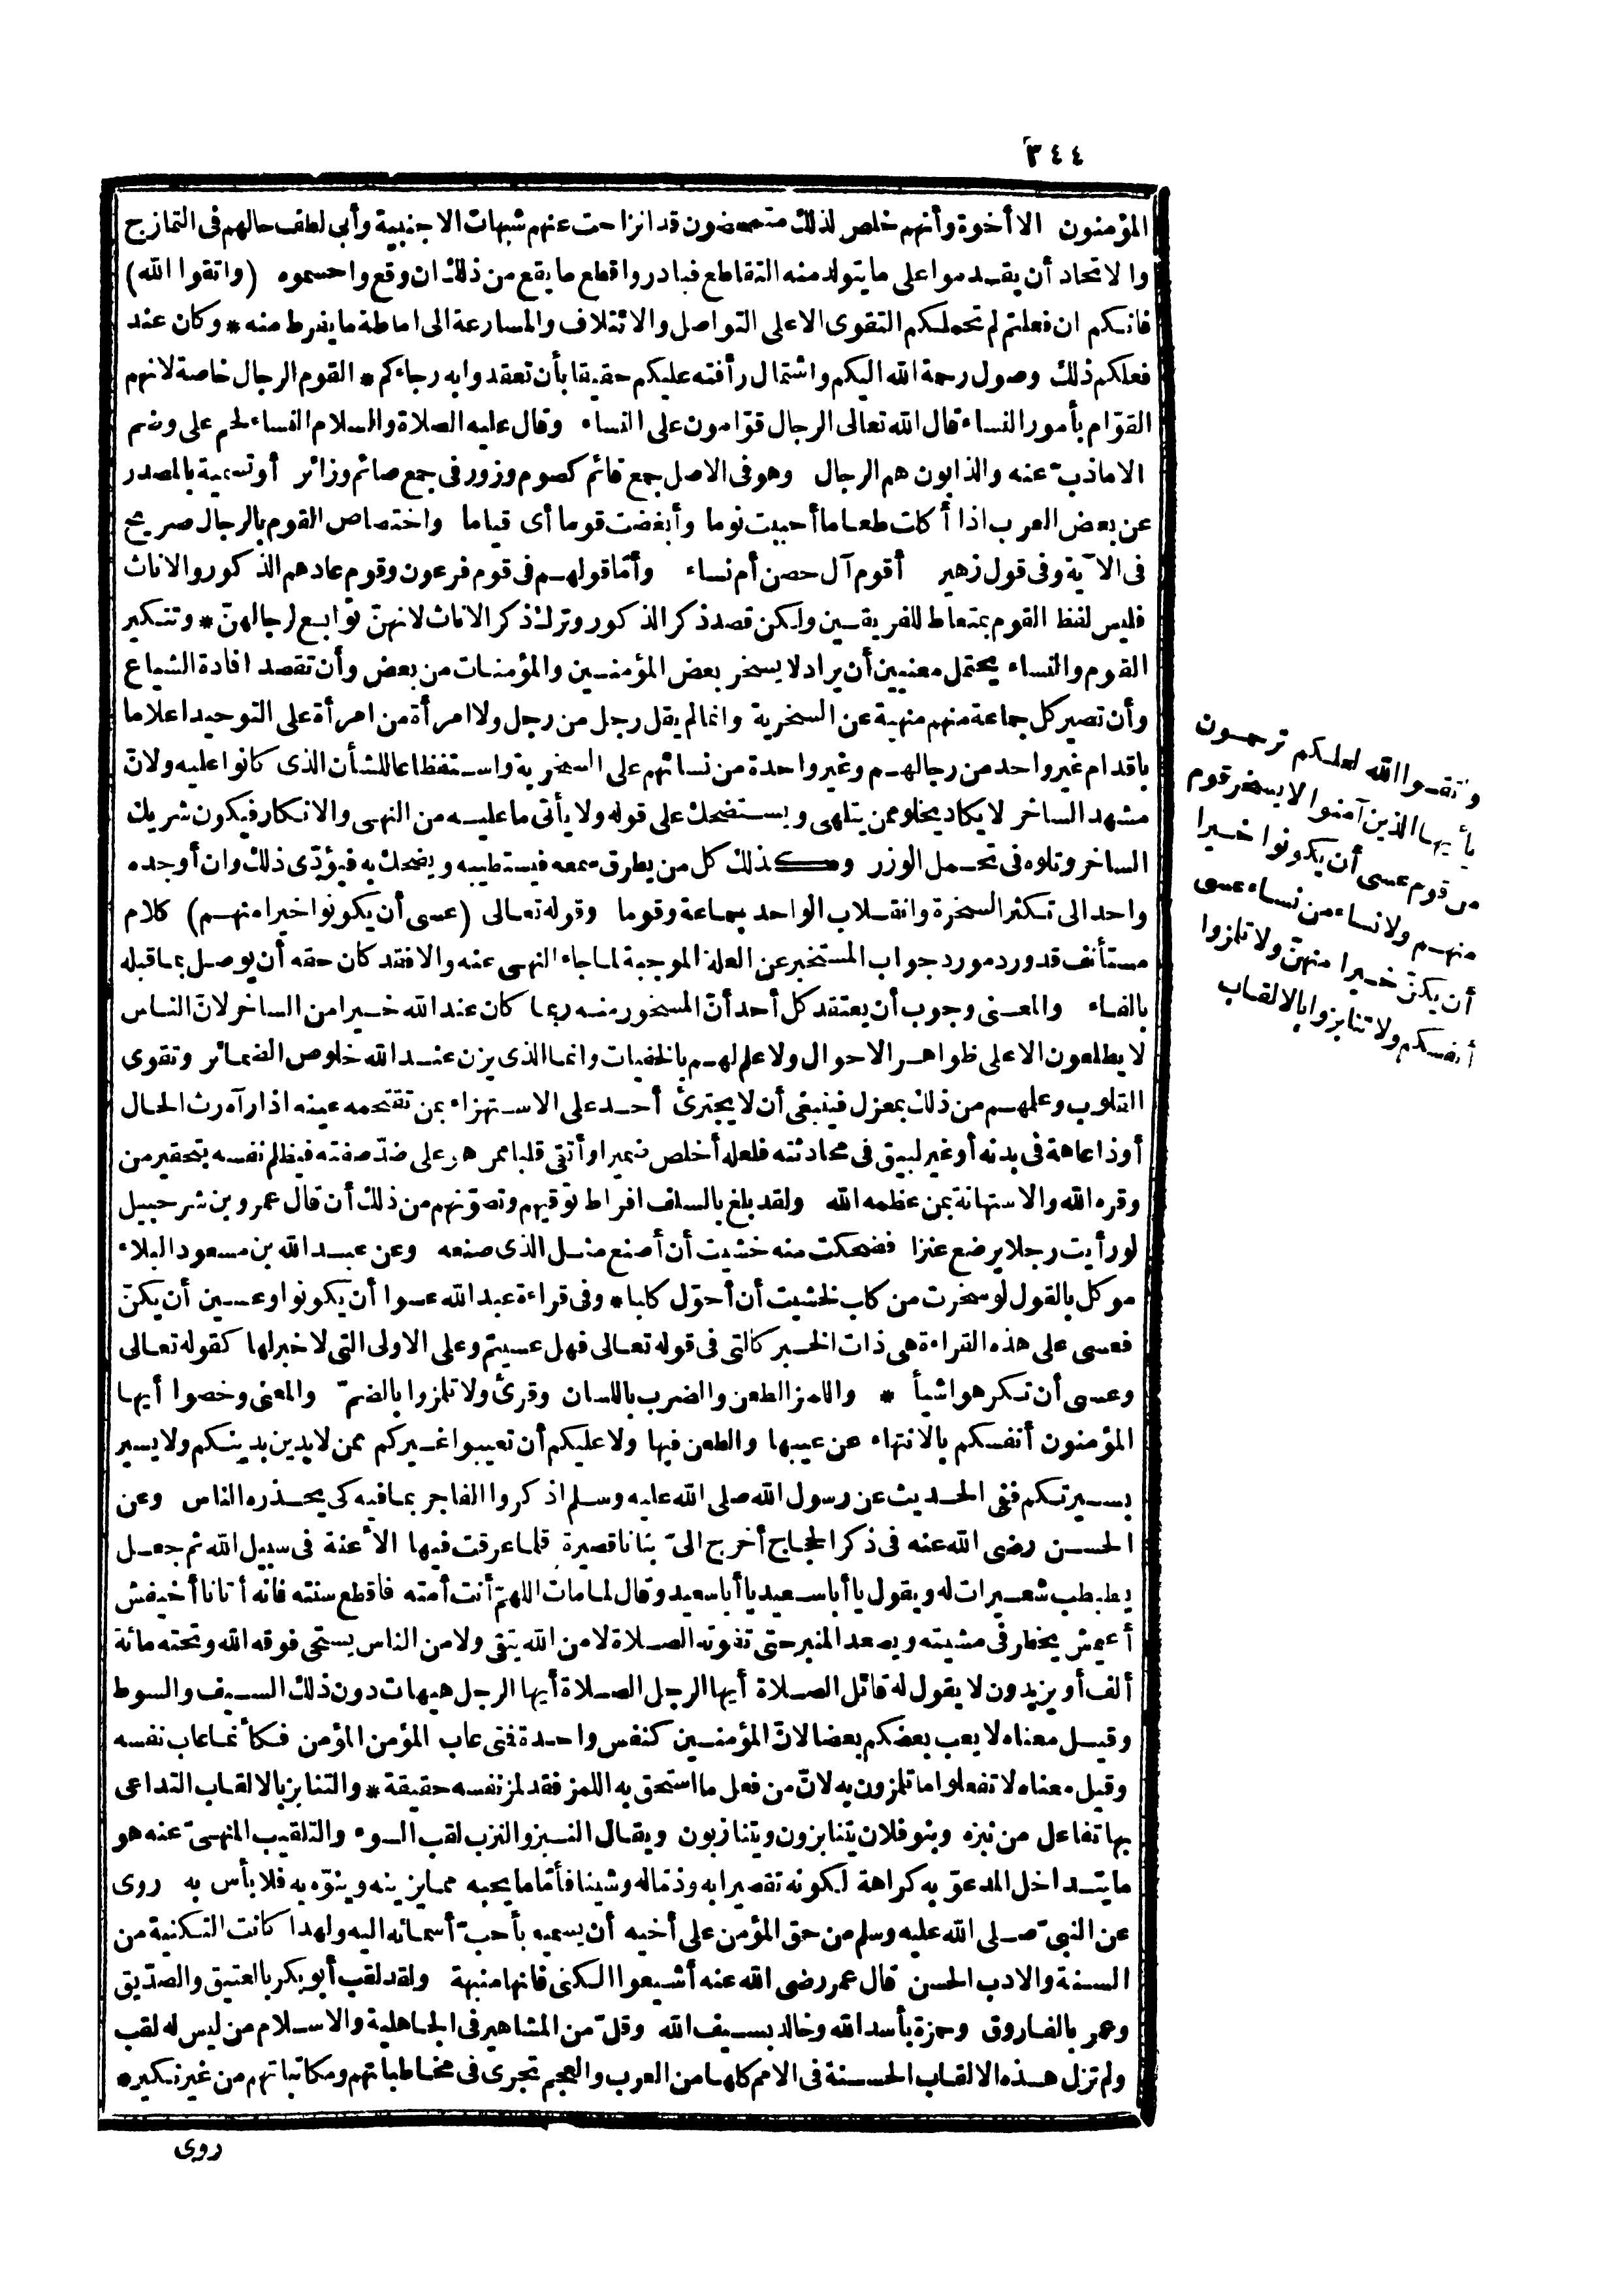 ٣٤٤
المؤمنون الا أخوة وأنهم خلص لذلك متمحضون قد انزاحت عنهم شبهات الاجنبية وأبى لطف حالهم فى التمازج
والاتحاد أن يقدموا على ما يتولد منه التقاطع فبادروا قطع ما يقع من ذلك ان وقع واحسموه (واتقوا الله)
فانكم ان فعلتم لم تحملكم التقوى الا على التواصل والائتلاف والمسارعة الى اماطة ما يفرط منه * وكان عند
فعلكم ذلك وصول رحمة الله اليكم واشتمال رأفته عليكم حقيقا بأن تعقدوا به رجاءكم * القوم الرجال خاصة لانهم
القوّام بأمور النساء قال الله تعالى الرجال قوّامون على النساء وقال عليه الصلاة والسلام النساء لحم على وضم
الا ماذبّ عنه والذابون هم الرجال وهو فى الاصل جمع قائم كصوم وزور فى جمع صائم وزائر أو تسمية بالمصدر
عن بعض العرب اذا أكات طعاما أحببت نوما وأبغضت قوما أى قياما واختصاص القوم بالرجال صريح
فى الآية وفى قول زهير أقوم آل حصن أم نساء وأمّا قولهم فى قوم فرعون وقوم عاد هم الذكور والاناث
فليس لفظ القوم بمتعاط للفريقين ولكن قصد ذكر الذكور وترك ذكر الاناث لانهنّ توابع لرجالهنّ * وتنكير
القوم والنساء يحتمل معنيين أن يراد لا يسخر بعض المؤمنين والمؤمنات من بعض وأن تقصد افادة الشياع
وأن تصير كل جماعة منهم منهية عن السخرية وانما لم يقل رجل من رجل ولا امرأة من امرأة على التوحيد اعلاما
باقدام غير واحد من رجالهم وغير واحدة من نسائهم على السخرية واستفظاعا للشأن الذى كانوا عليه ولانّ
مشهد الساخر لا يكاد يخلو ممن يتلهى ويستضحك على قوله ولا يأتى ما عليه من النهى والانكار فيكون شريك
الساخر وتلوه فى تحمل الوزر وكذلك كل من يطرق سمعه فيستطيبه ويضحك به فيؤدّى ذلك وان أوجده
واحد الى تكثر السخرة وانقلاب الواحد جماعة وقوما وقوله تعالى (عسى أن يكونوا خيرا منهم) كلام
مستأنف قد ورد مورد جواب المستخبر عن العلة الموجبة لما جاء النهى عنه والا فقد كان حقه أن يوصل بما قبله
بالفاء والمعنى وجوب أن يعتقد كل أحد أنّ المسخور منه ربما كان عند الله خيرا من الساخر لانّ الناس
لا يطلعون الا على ظواهر الاحوال ولا علم لهم بالخفيات وانما الذى يزن عند الله خلوص الضمائر وتقوى
القلوب وعلمهم من ذلك بمعزل فينبغى أن لا يجترئ أحد على الاستهزاء بمن تقتحمه عينه اذا رآه رث الحال
أو ذا عاهة فى بدنه أو غير لبيق فى محادثته فلعله أخلص ضميرا وأتقى قلبا ممن هو على ضدّ صفته فيظلم نفسه بتحقير من
وقره الله والاستهانة بمن عظمه الله ولقد بلغ بالسلف افراط توقيهم وتصوّنهم من ذلك أن قال عمرو بن شرحبيل
لو رأيت رجلا يرضع عنزا فضحكت منه خشيت أن أصنع مثل الذى صنعه وعن عبد الله بن مسعود البلاء
موكل بالقول لو سخرت من كلب لخشيت أن أحوّل كلبا * وفى قراءة عبد الله عسوا أن يكونوا وعسين أن يكنّ
فعسى على هذه القراءة هى ذات الخبر كالتى فى قوله تعالى فهل عسيتم وعلى الاولى التى لا خبر لها كقوله تعالى
وعسى أن تكرهوا شيأ * واللمز الطعن والضرب باللسان وقرئ ولا تلمزوا بالضمّ والمعنى وخصوا أيها
المؤمنون أنفسكم بالانتهاء عن عيبها والطعن فيها ولا عليكم أن تعيبوا غيركم ممن لا يدين بدينكم ولا يسير
بسيرتكم ففى الحديث عن رسول الله صلى الله عليه وسلم اذكروا الفاجر بما فيه كى يحذره الناس وعن
الحسن رضى الله عنه فى ذكر الحجاج أخرج الىّ بنانا قصيرة قلما عرقت فيها الأعنة فى سبيل الله ثم جعل
يطبطب شعيرات له ويقول يا أبا سعيد يا أبا سعيد وقال لما مات اللهمّ أنت أمته فاقطع سنته فانه أتانا أخيفش
أعيمش يخطر فى مشيته ويصعد المنبر حتى تفوته الصلاة لا من الله يتقى ولا من الناس يستحى فوقه الله وتحته مائة
ألف أو يزيدون لا يقول له قائل الصلاة أيها الرجل الصلاة أيها الرجل هيهات دون ذلك السيف والسوط
وقيل معناه لا يعب بعضكم بعضا لانّ المؤمنين كنفس واحدة فمتى عاب المؤمن المؤمن فكأنما عاب نفسه
وقيل معناه لا تفعلوا ما تلمزون به لانّ من فعل ما استحق به اللمز فقد لمز نفسه حقيقة * والتنابز بالالقاب التداعى
بها تفاعل من نبزه وبنو فلان يتنابزون ويتنازبون ويقال النبز والنزب لقب السوء والتلقيب المنهىّ عنه هو
ما يتداخل المدعوّ به كراهة لكونه تقصيرا به وذمّا له وشينا فأمّا ما يحبه مما يزينه وينوّه به فلا بأس به روى
عن النبىّ صلى الله عليه وسلم من حق المؤمن على أخيه أن يسميه بأحبّ أسمائه اليه ولهذا كانت التكنية من
السنة والادب الحسن قال عمر رضى الله عنه أشيعوا الكنى فانها منبهة ولقد لقب أبو بكر بالعتيق والصدّيق
وعمر بالفاروق وحمزة بأسد الله وخالد بسيف الله وقلّ من المشاهير فى الجاهلية والاسلام من ليس له لقب
ولم تزل هذه الالقاب الحسنة فى الامم كلها من العرب والعجم تجرى فى مخاطباتهم ومكاتباتهم من غير نكير *
روى
واتقوا الله لعلكم ترحمون
يأيها الذين آمنوا لا يسخر قوم
من قوم عسى أن يكونوا خيرا
منهم ولا نساء من نساء عسى
أن يكنّ خيرا منهنّ ولا تلمزوا
أنفسكم ولا تنابزوا بالالقاب